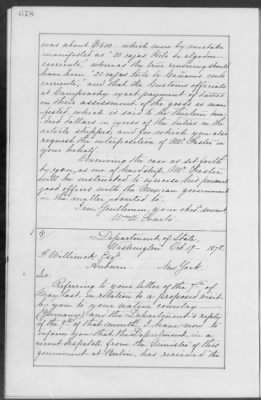 678
was about $600, which were by mistake
manifested as "20 cajas hilo de algodon
corriente," whereas the true rendering should
have been "20 cajas hilo de cáñamo
corriente," and that the Customs officials
at Campeachy exact payment of duties
on their assessment of the goods so man-
ifested, which is said to be thirteen hun-
dred dollars in excess of the duties on the
article shipped, and for which you also
request the interposition of Mr. Foster in
your behalf.
Conceiving the case as set forth
by you, as one of hardship, Mr. Foster
will be instructed to exercise his personal
good offices with the Mexican government
in the matter adverted to.
I am, Gentlemen, your obdt. servant
Wm. M. Evarts.
Department of State,
Washington Oct. 19th 1878.
Esq.
Auburn, New York.
Sir:
Referring to your letter of the 7th of
May last, in relation to a proposed visit
by you to your native country
(Germany) and the Department's reply
of the 9th of that month, I have now to
inform you that the Department, in a
recent despatch from the Minister of this
government at Berlin, has received the